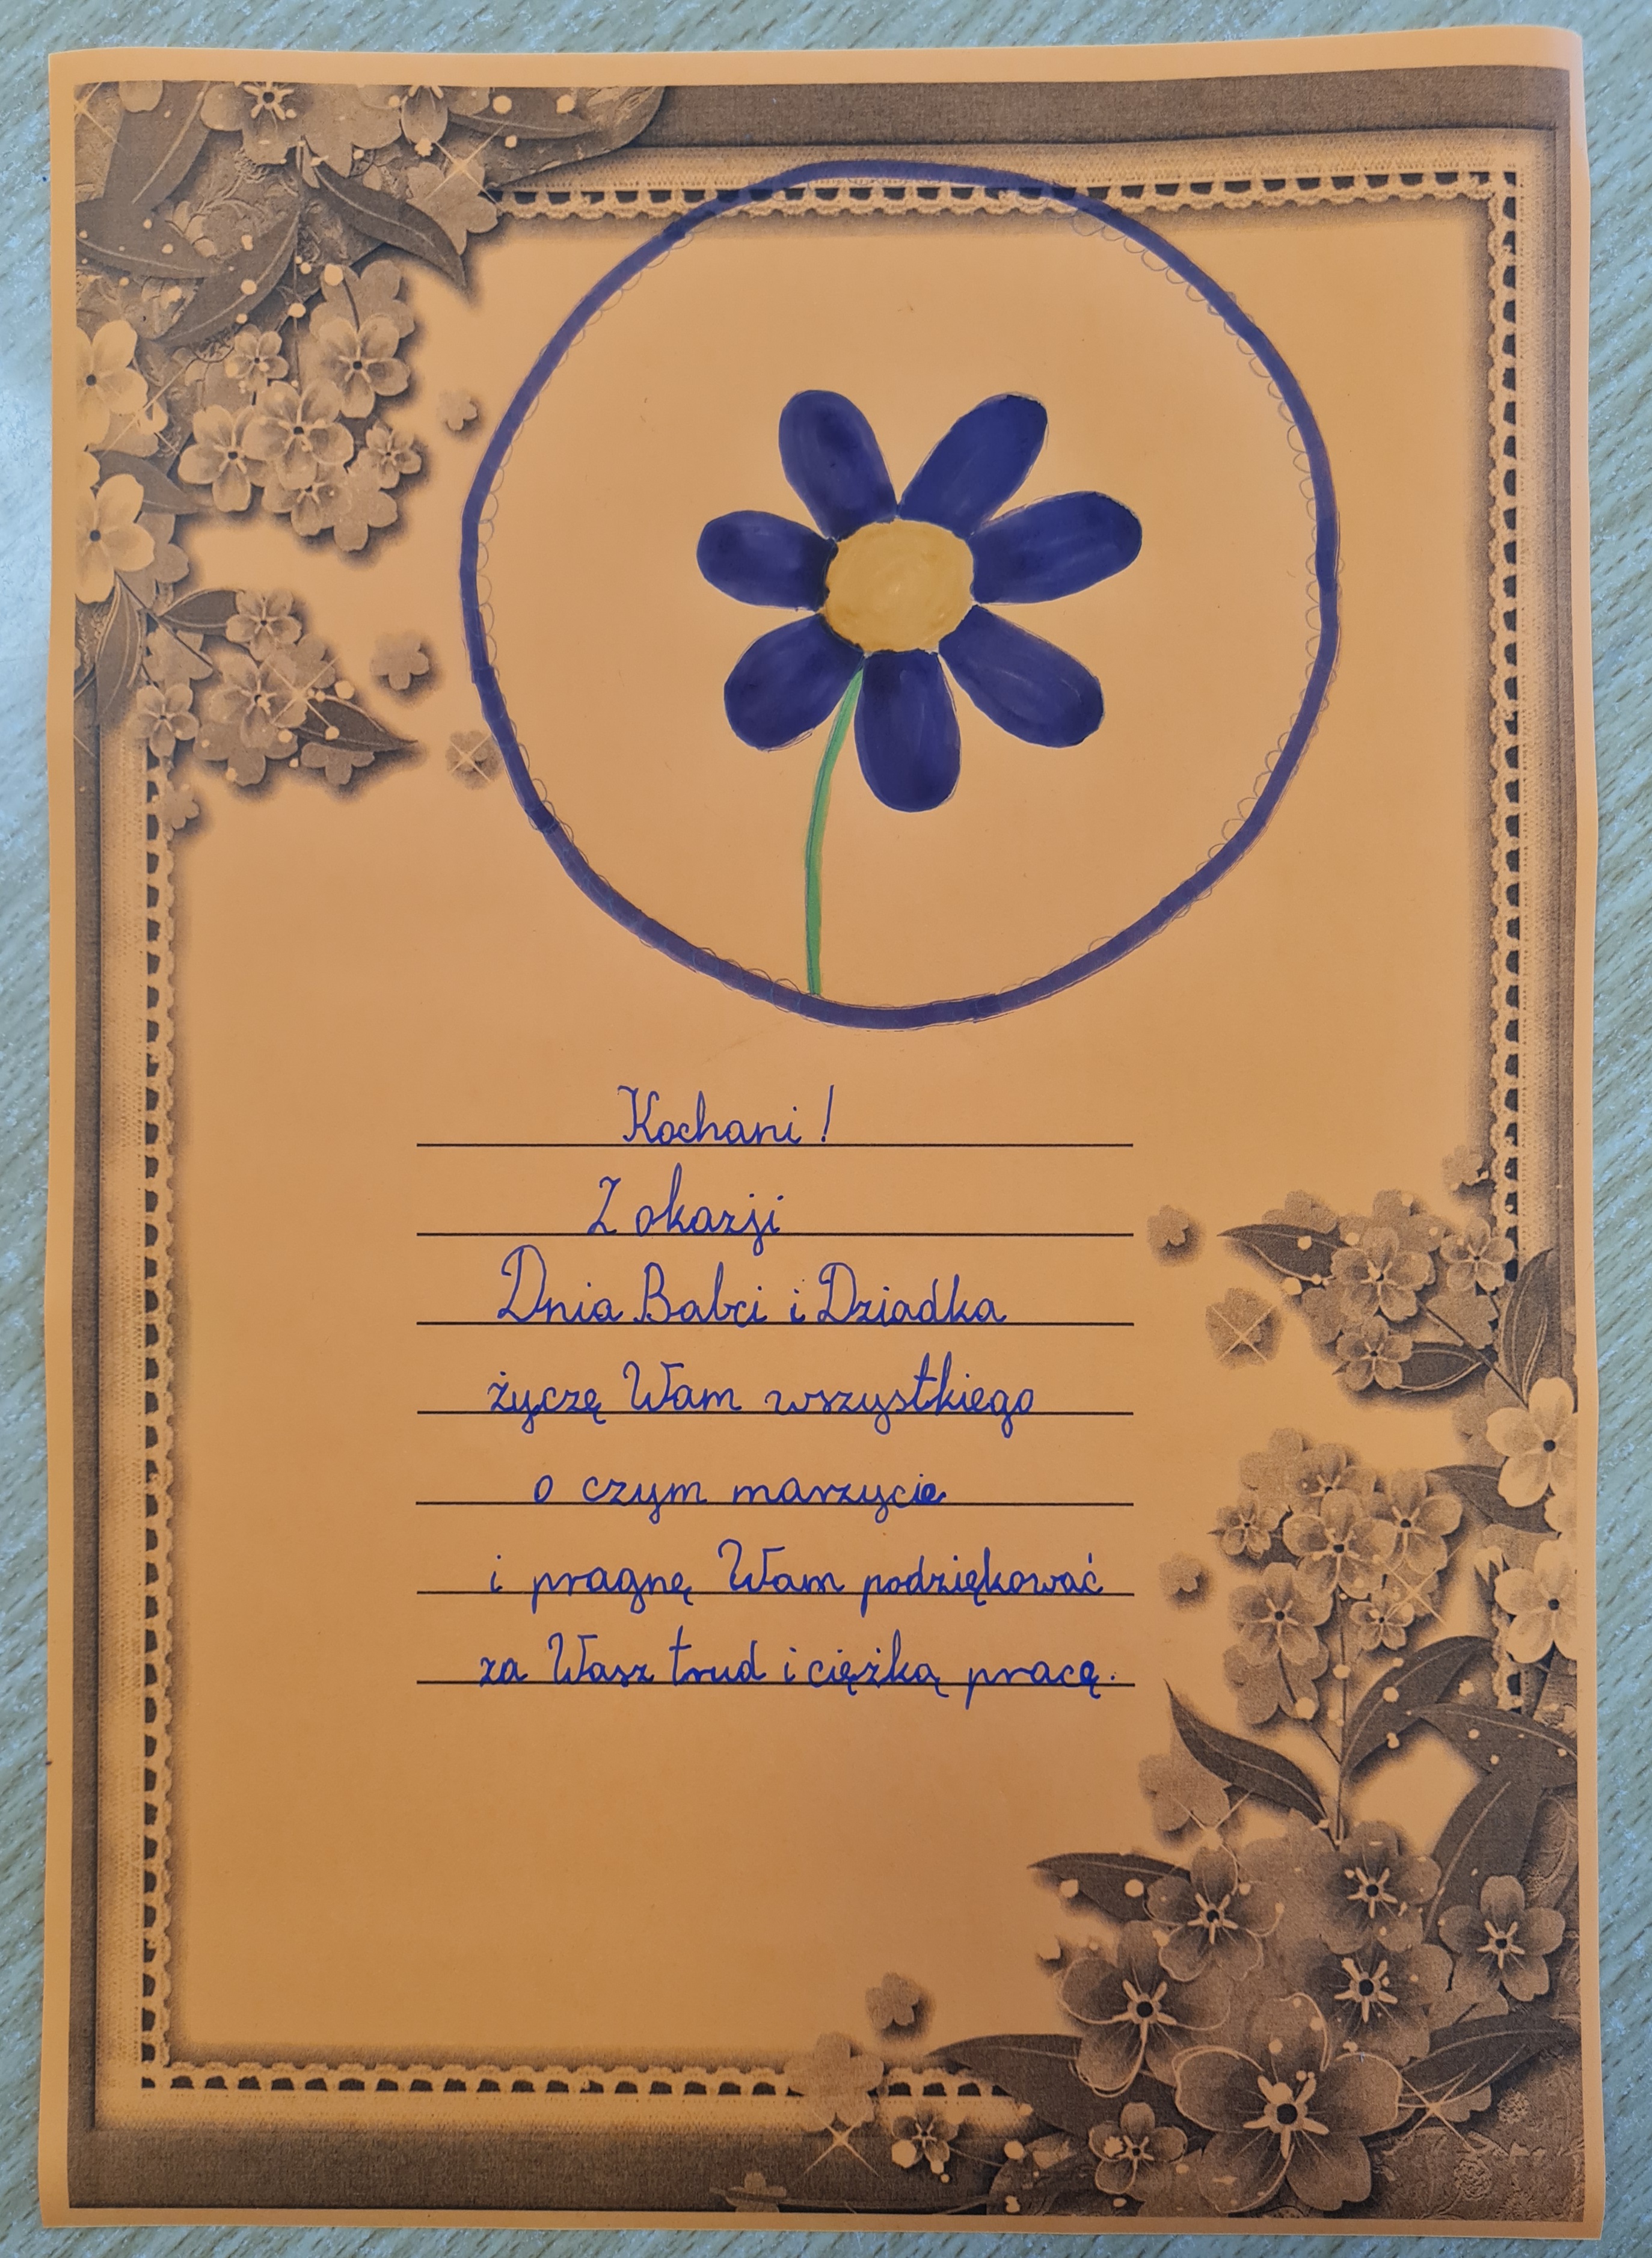 Kochani!
Z okazji
Dnia Babci i Dziadka
życzę Wam wszystkiego
o czym marzycie
i pragnę Wam podziękować
za Wasz trud i ciężką pracę.